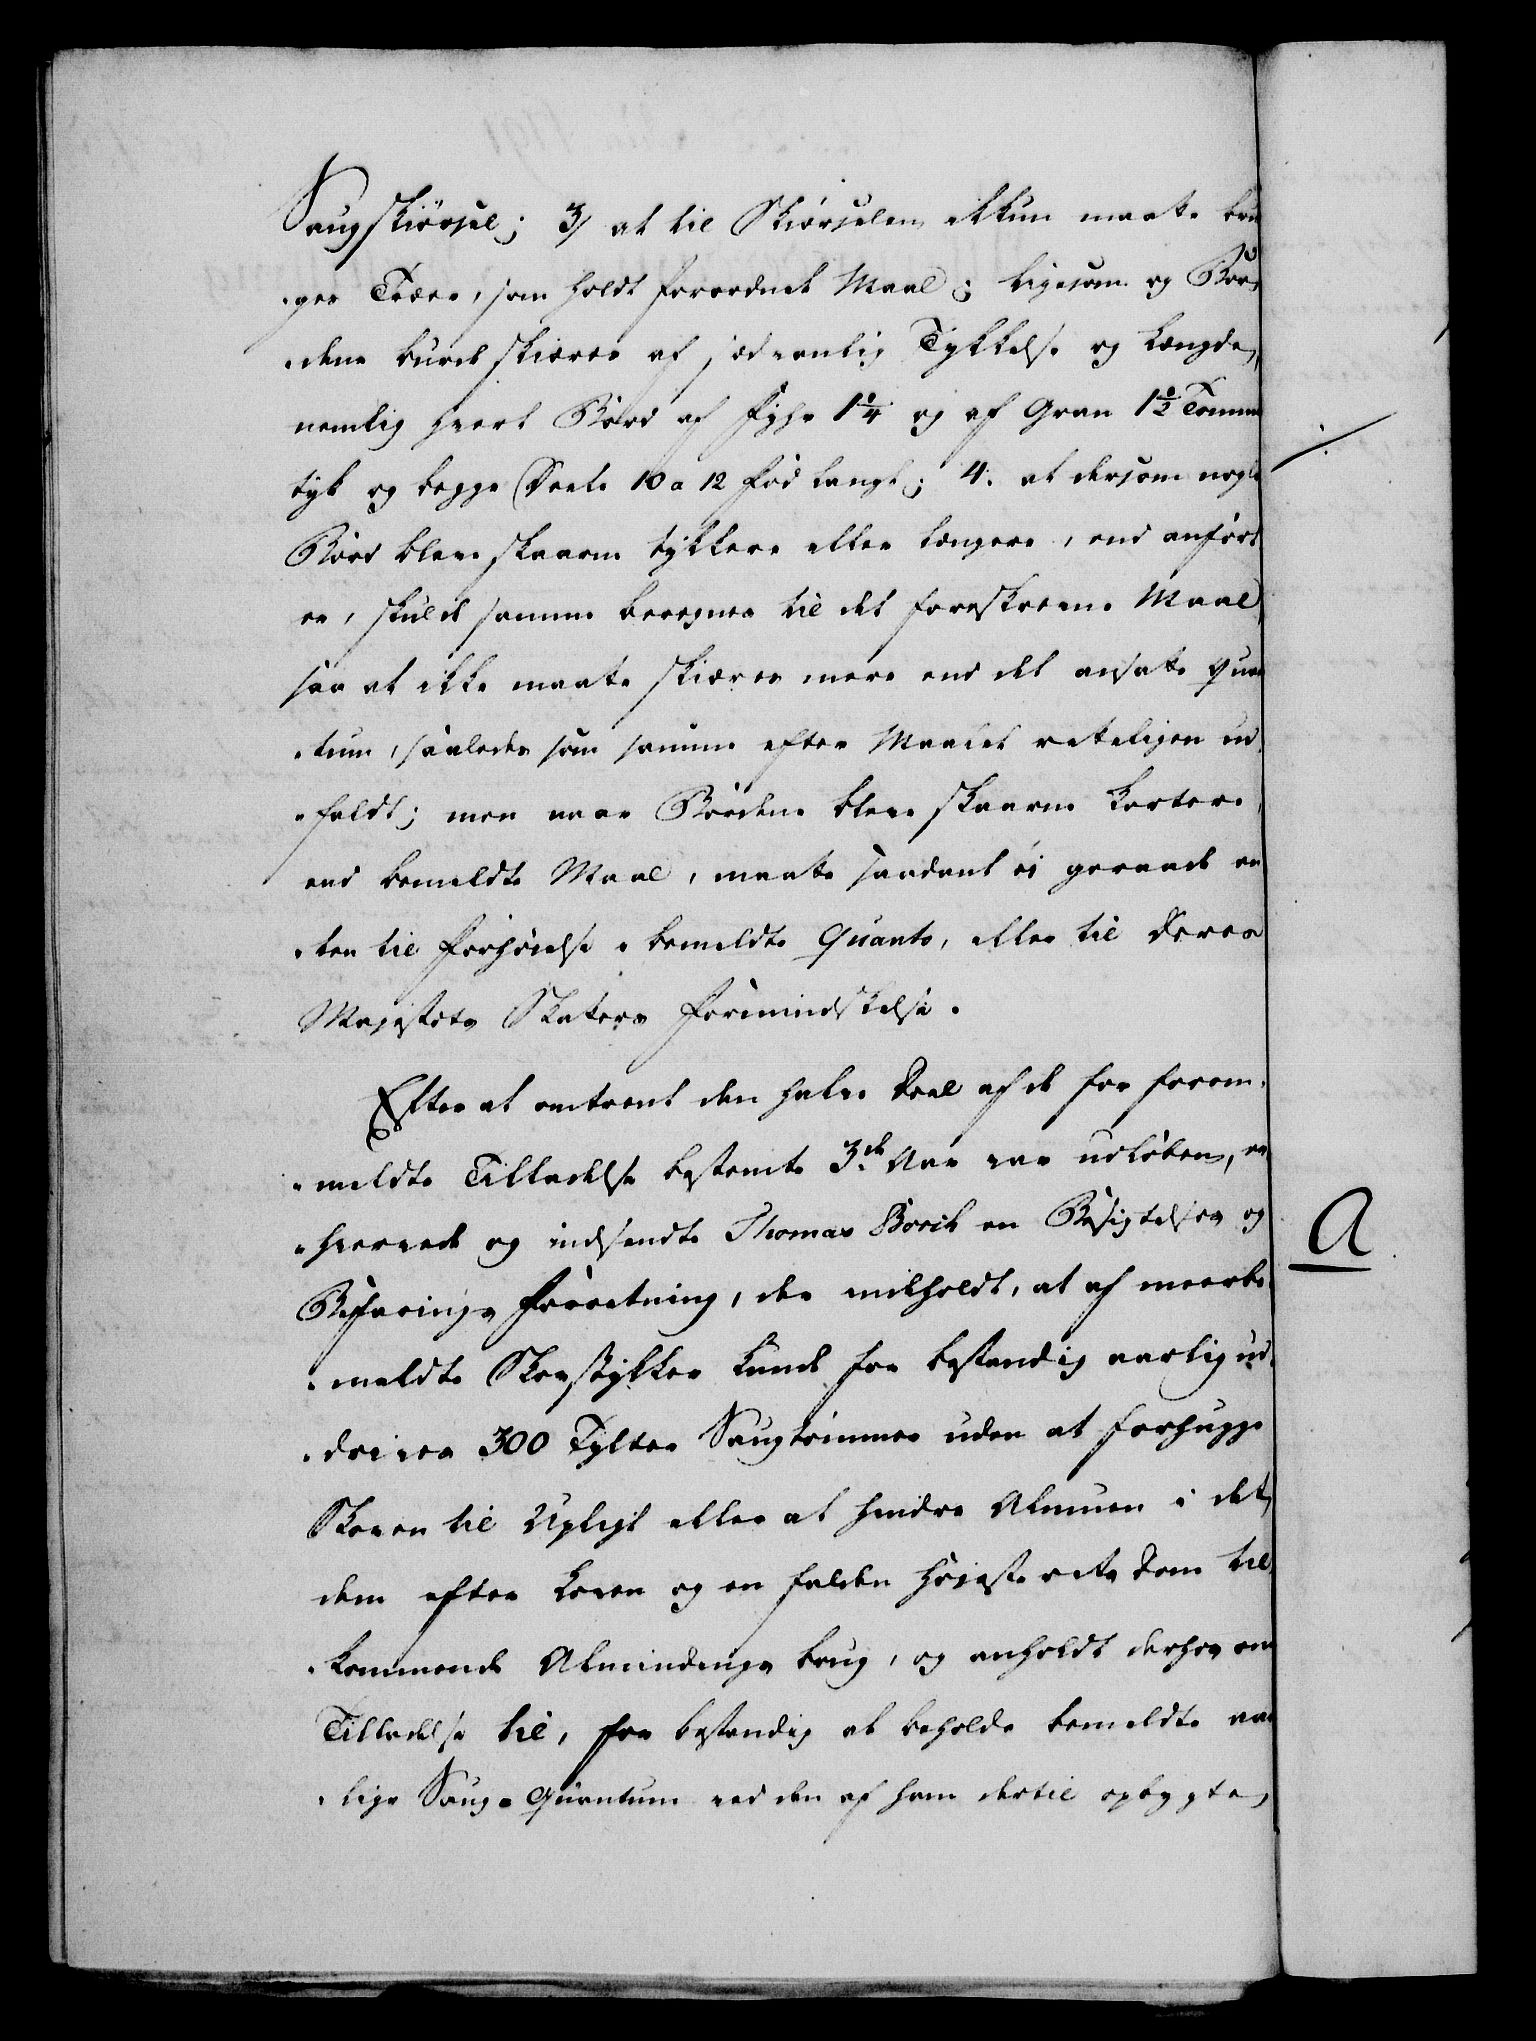 Saugskiörsel; 3/ at til Skiörselen ikkun maate bru
-ges Træer, som holdt forordnet Maal; ligesom og Bor,
-dene burde skieres af sædvanlig Tykkelse og Længde,
nemlig hvert Bord af Fyhr 1¼ og af Gran 1½ Tomme
tyk og begge Sorte 10 a 12 Fod langt; 4. at dersom nogle
Bord bleve skaarne tykkere eller længere, end anført
er, skulde samme beregnes til det foreskrevne Maal,
saa at ikke maate skieres mere end det ansatte Quan
-tum, saaledes som samme efter Maalet rettelig en ud,
-faldt; men naar Bordene bleve skaarne kortere,
end bemeldte Maal, maate saadant ei geraade en
-ten til Forhöielse i bemeldte Quanto, eller til Deres
Majestets Skatters Formindskelse.
Efter at omtrent den halve Deel af de for forom,
-meldte Tilladelse bestemte 3de Aar var udløben, er
-hvervede og indsendte Thomas Borch en Besigtelses og
Befarings Forretning, der indholdt, at af meerbe
-meldte Skovstykker kunde for bestandig aarlig ud,
-drives 300 Tylter Saugtømmer uden at forhugge
Skoven til Upligt eller at hindre Almuen i det,
dem efter Loven og en falden Høyeste retts Dom til
-kommende Almindings brug, og anholdt derhos om
Tilladelse til, for bestandig at beholde bemeldte aar
-lige Saug-Quantum ved den af ham dertil opbygte,
A